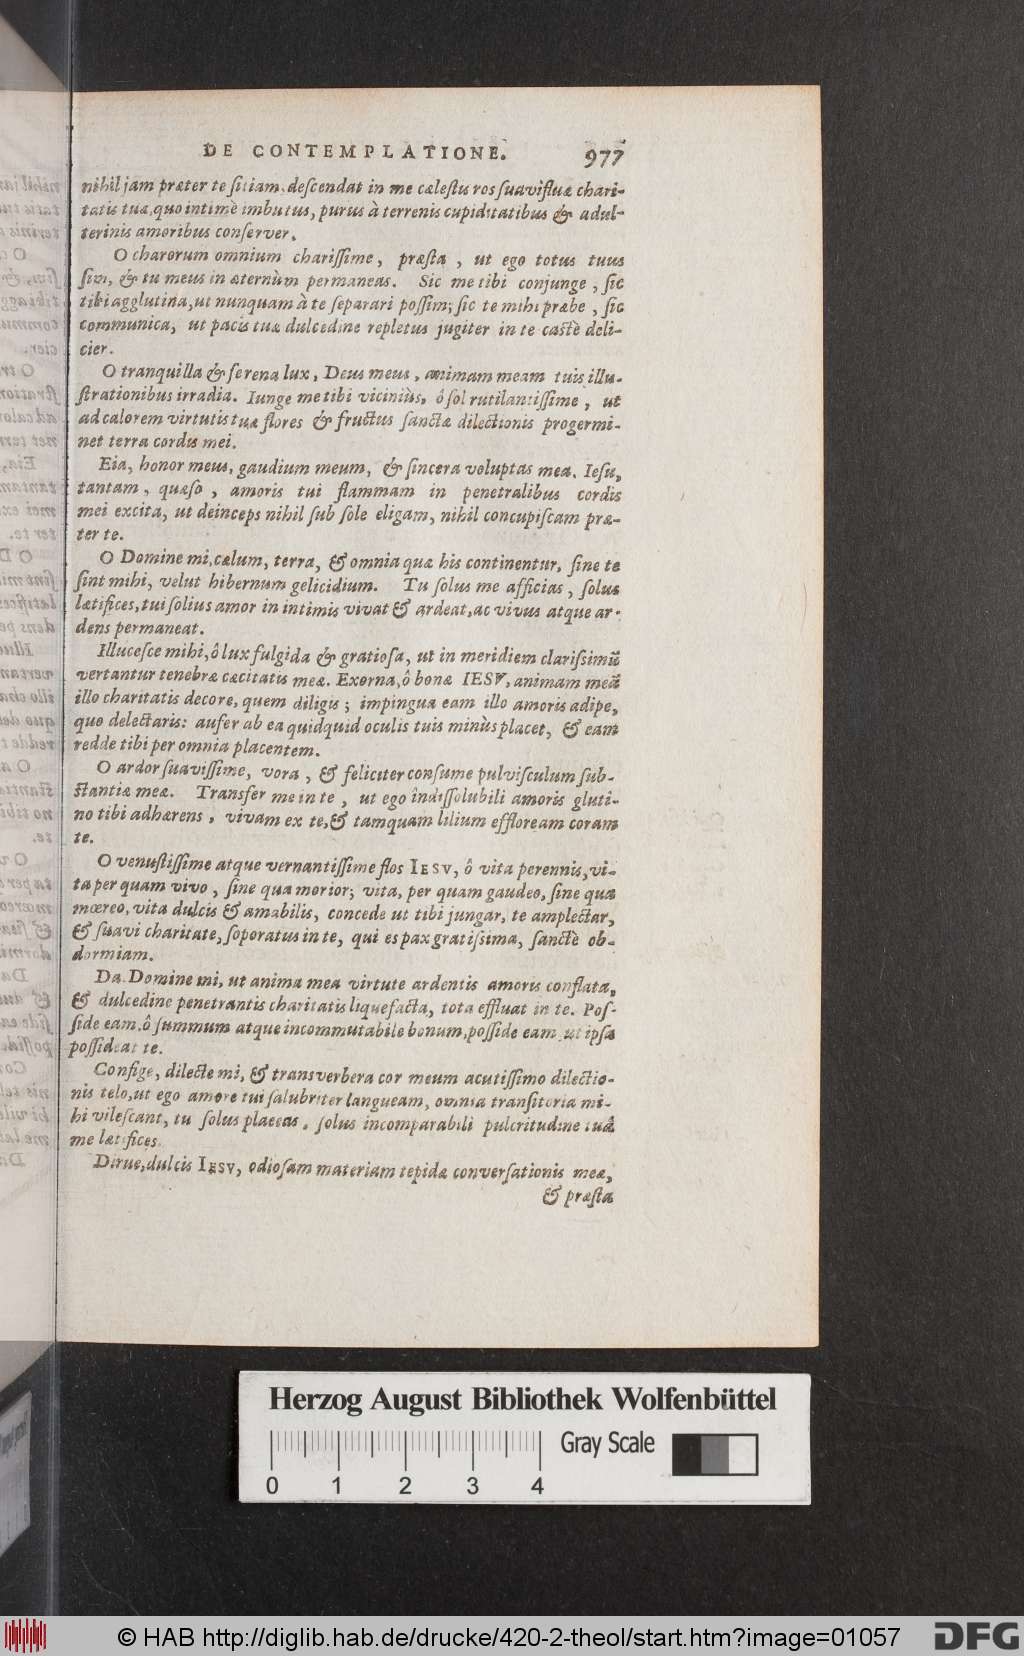 DE CONTEMPLATIONE. 977
nihil jam præter te sitiam, descendat in me cælestis ros suavifluæ chari-
tatis tuæ, quo intimè imbutus, purus à terrenis cupiditatibus & adul-
terinis amoribus conserver.
O charorum omnium charissime, præsta, ut ego totus tuus
sim, & tu meus in æternùm permaneas. Sic me tibi conjunge, sic
tibi agglutina, ut nunquam à te separari possim; sic te mihi præbe, sic
communica, ut pacis tuæ dulcedine repletus jugiter in te castè deli-
cier.
O tranquilla & serena lux, Deus meus, animam meam tuis illu-
strationibus irradia. Iunge me tibi viciniùs, ô sol rutilantissime, ut
ad calorem virtutis tuæ flores & fructus sanctæ dilectionis progermi-
net terra cordis mei.
Eia, honor meus, gaudium meum, & sincera voluptas mea. Iesu,
tantam, quæso, amoris tui flammam in penetralibus cordis
mei excita, ut deinceps nihil sub sole eligam, nihil concupiscam præ-
ter te.
O Domine mi, cælum, terra, & omnia quæ his continentur, sine te
sint mihi, velut hibernum gelicidium. Tu solus me afficias, solus
lætifices, tui solius amor in intimis vivat & ardeat, ac vivus atque ar-
dens permaneat.
Illucesce mihi, ô lux fulgida & gratiosa, ut in meridiem clarissimũ
vertantur tenebræ cæcitatis meæ. Exorna, ô bone IESV, animam meã
illo charitatis decore, quem diligis; impingua eam illo amoris adipe,
quo delectaris: aufer ab ea quidquid oculis tuis minùs placet, & eam
redde tibi per omnia placentem.
O ardor suavissime, vora, & feliciter consume pulvisculum sub-
stantiæ meæ. Transfer me in te, ut ego indissolubili amoris gluti-
no tibi adhærens, vivam ex te, & tamquam lilium effloream coram
te.
O venustissime atque vernantissime flos IESV, ô vita perennis, vi-
ta per quam vivo, sine qua morior; vita, per quam gaudeo, sine qua
mœreo, vita dulcis & amabilis, concede ut tibi jungar, te amplectar,
& suavi charitate, soporatus in te, qui es pax gratissima, sanctè ob-
dormiam.
Da Domine mi, ut anima mea virtute ardentis amoris conflata,
& dulcedine penetrantis charitatis liquefacta, tota effluat in te. Pos-
side eam, ô summum atque incommutabile bonum, posside eam ut ipsa
possideat te.
Confige, dilecte mi, & transverbera cor meum acutissimo dilectio-
nis telo, ut ego amore tui salubriter langueam, omnia transitoria mi-
hi vilescant, tu solus placeas, solus incomparabili pulcritudine tuâ
me lætifices.
Dirue, dulcis IESV, odiosam materiam tepidæ conversationis meæ,
& præsta
Herzog August Bibliothek Wolfenbüttel
0 1 2 3 4 Gray Scale
© HAB http://diglib.hab.de/drucke/420-2-theol/start.htm?image=01057
DFG